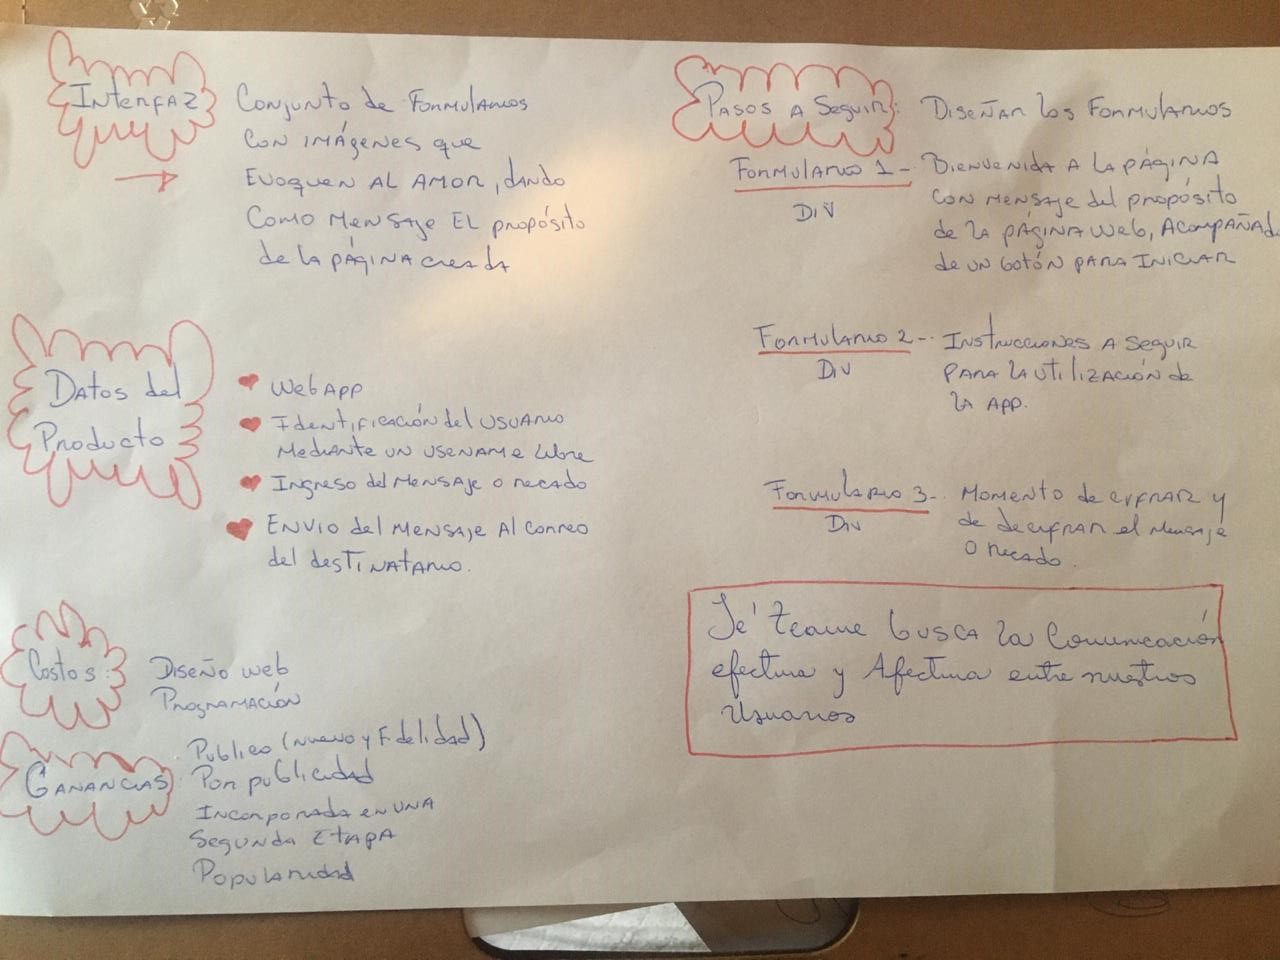 Interfaz
Conjunto de Formularios
con imágenes que
evoquen al amor, dando
como mensaje el propósito
de la página creada
Datos del
Producto
Web App
Identificación del usuario
mediante un usename libre
Ingreso del mensaje o recado
Envio del mensaje al correo
del destinatario.
Costos:
Diseño web
Programación
Ganancias
Publico (nuevo y Fidelidad)
Por publicidad
Incorporada en una
Segunda Etapa
Popularidad
Pasos a Seguir:
Diseñar los Formularios
Formulario 1-
Div
Bienvenida a la página
con mensaje del propósito
de la página web, acompañad
de un botón para iniciar
Formulario 2-
Div
Instrucciones a seguir
para la utilización de
la app.
Formulario 3-
Div
Momento de cifrar y
de decifrar el mensaje
o recado.
Je' t'eaime busca la Comunicación
efectiva y Afectiva entre nuestros
Usuarios